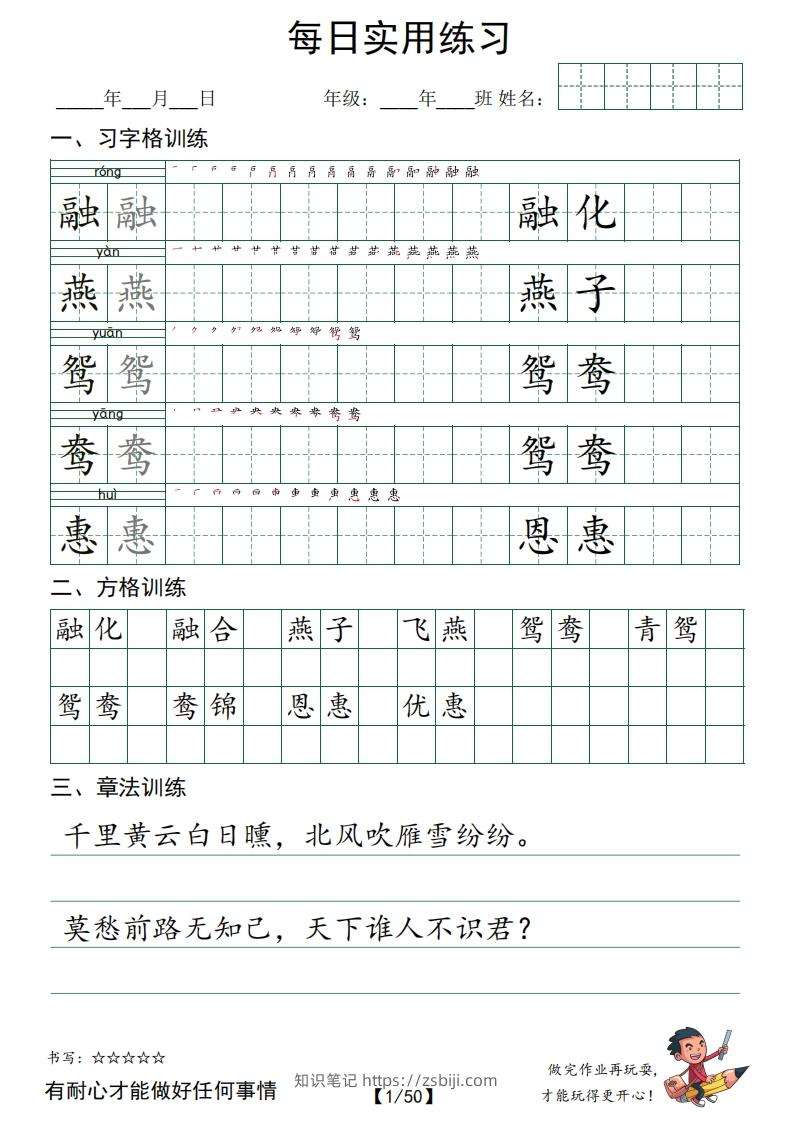 每日实用练习
_____年___月___日 年级：____年____班 姓名：
一、习字格训练
róng
融 融 融 化
yàn
燕 燕 燕 子
yuān
鸳 鸳 鸳 鸯
yāng
鸯 鸯 鸳 鸯
huì
惠 惠 恩 惠
二、方格训练
融 化 融 合 燕 子 飞 燕 鸳 鸯 青 鸳
鸳 鸯 鸯 锦 恩 惠 优 惠
三、章法训练
千里黄云白日曛，北风吹雁雪纷纷。
莫愁前路无知己，天下谁人不识君？
书写：☆☆☆☆☆
做完作业再玩耍，
有耐心才能做好任何事情 知识笔记 https://zsbiji.com
【1/50】
才能玩得更开心！